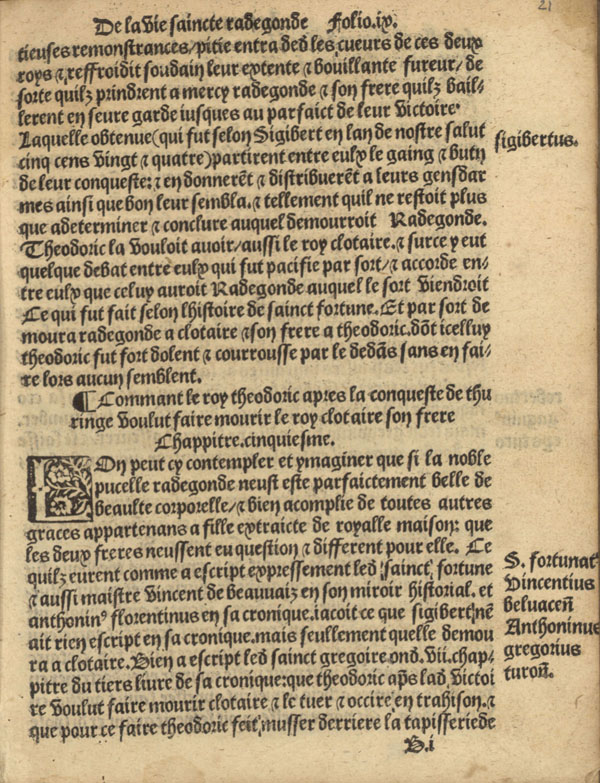 De la Vie saincte radegonde Folio.ix.
21
tieuses remonstrances/pitie entra ded les cueurs de ces deux
roys ⁊ reffroidit soudain leur extente ⁊ bouillante fureur/ de
sorte quilz prindrent a mercy radegonde ⁊ son frere quilz bail-
lerent en seure garde iusques au parfaict de leur victoire.
Laquelle obtenue(qui fut selon Sigibert en lan de nostre salut
sigibertus.
cinq cens vingt ⁊ quatre)partirent entre eulx le gaing ⁊ butin
de leur conqueste: ⁊ en donnerēt ⁊ distribuerēt a leurs gensdar
mes ainsi que bon leur sembla. ⁊ tellement quil ne restoit plus
que adeterminer ⁊ conclure auquel demourroit Radegonde.
Theodoric la vouloit auoir/aussi le roy clotaire.⁊ surce y eut
quelque debat entre eulx qui fut pacifie par sort/⁊ accorde en-
tre eulx que celuy auroit Radegonde auquel le sort viendroit
Ce qui fut fait selon lhistoire de sainct fortune. Et par sort de
moura radegonde a clotaire ⁊ son frere a theodoric.dōt icelluy
theodoric fut fort dolent ⁊ courrousse par le dedās sans en fai-
re lors aucun semblent.
¶ Commant le roy theodoric apres la conqueste de thu
ringe voulut faire mourir le roy clotaire son frere
Chappitre.cinquiesme.
On peut cy contempler et ymaginer que si la noble
pucelle radegonde neust este parfaictement belle de
beaulte corporelle/⁊ bien acomplie de toutes autres
graces appartenans a fille extraicte de royalle maison: que
les deux freres neussent eu question ⁊ different pour elle. Ce
quilz eurent comme a escript expressement led sainct fortune
S. fortunat
⁊ aussi maistre Vincent de beauuaiz en son miroir historial. et
Vincentius
anthonin⁹ florentinus en sa cronique. iacoit ce que sigibert nē
beluaceñ
ait rien escript en sa cronique.mais seullement quelle demou
Anthoninus
ra a clotaire. Bien a escript led sainct gregoire on d. vii. chap-
gregorius
pitre du tiers liure de sa cronique:que theodoric ap̄s lad victoi
turoñ.
re voulut faire mourir clotaire ⁊ le tuer ⁊ occire en trahison.⁊
que pour ce faire theodoric feit musser derriere la tapisserie de
B.i